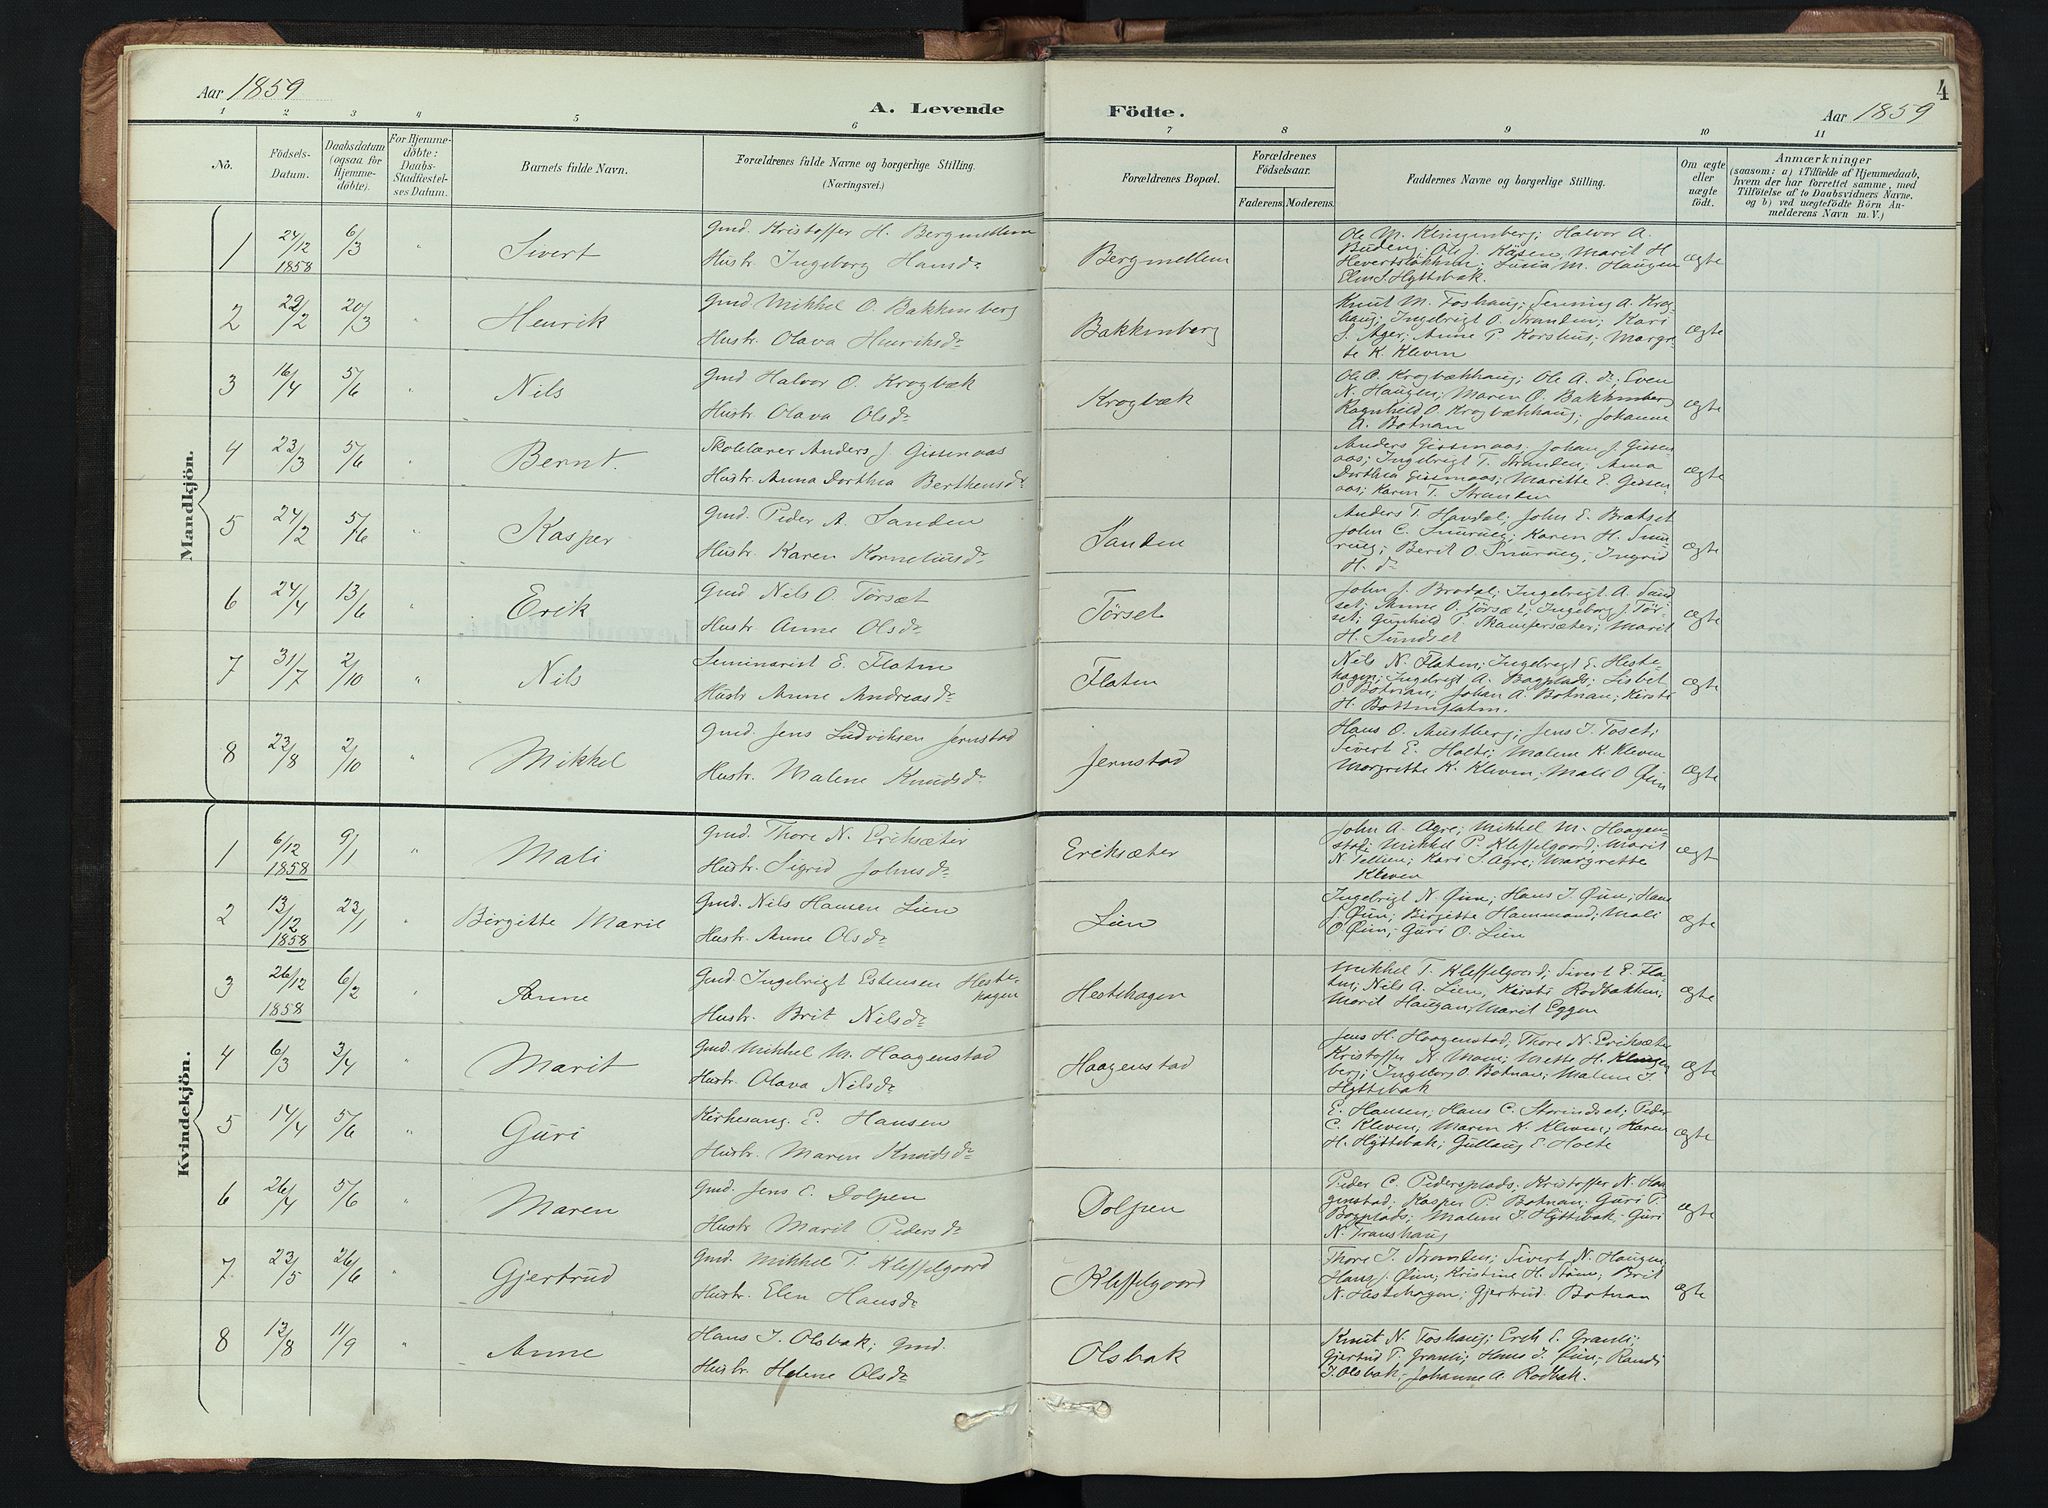 Aar 1859
A. Levende Födte.
Aar 1859
4
1 2 3 4 5 6 7 8 9 10 11
No.
Födsels-
Datum.
Daabsdatum
(ogsaa for
Hjemme-
döbte).
For Hjemme-
döbte:
Daabs-
Stadfæstel-
ses Datum.
Barnets fulde Navn.
Forældrenes fulde Navne og borgerlige Stilling.
(Næringsvei.)
Forældrenes Bopæl.
Forældrenes
Födselsaar.
Faderens. Moderens.
Faddernes Navne og borgerlige Stilling.
Om ægte
eller
uægte
födt.
Anmærkninger
(saasom: a) i Tilfælde af Hjemmedaab,
hvem der har forrettet samme, med
Tilföielse af to Daabsvidners Navne.
og b) ved uægtefödte Börn An-
melderens Navn m. V.)
Mandkjön.
1 24/12 1858 6/3 " Sivert
Gmd. Kristoffer H. Bergmellem
Hustr. Ingeborg Hansdr
Bergmellem
Ole M. Klingenberg; Halvor A.
Budeng; Ole J. Kåsen, Marit H
M. Haugen
Elen S. Hyttebak.
Ægte
2 22/2 20/3 " Henrik
Gmd. Mikkel O. Bakkenberg
Hustr. Olava Henriksdr
Bakkenberg
Knut M. Foshaug; Henning A. Krog-
haug; Ingebrigt O. Stranden; Kari
S. Ager; Anne P. Korshus; Margre-
te K. Kleven
Ægte
3 16/4 5/6 " Nils
Gmd Halvor O. Krogbæk
Hustr. Olava Olsdr
Krogbæk
Ole O. Krogbækhaug; Ole A. dr; Sven
N. Haugen; Maren O. Bakkenberg
Ragnheld O. Krogbækhaug; Johanne
A. Botnan
Ægte
4 23/3 5/6 " Bernt.
Skolelærer Anders J. Gissenaas
Hustr. Anna Dorthea Berthensdr
Anders Gissenaas, Johan J. Gissen-
aas; Ingebrigt T. Stranden; Anna
Dorthea Gissenaas; Maritte E. Gissen-
aas; Karen T. Stranden
Ægte
5 24/2 5/6 Kasper
Gmd. Peder A. Sanden
Hustr. Karen Korneliusdr
Sanden
Anders T. Havdal; John E. Bratset
John C. Snurueg; Karen H. Snu-
rueg; Berit O. Snurueg; Ingrid
H. dr
Ægte
6 24/4 13/6 " Erik
Gmd Nils O. Törsæt
Hustr. Anne Olsdr
Törset
John J. Brodal; Ingebrigt A. Sund-
set; Anne O. Törsæt; Ingeborg J. Tör-
set; Gunhild P. Skamfersæter; Marit
H. Sundset
Ægte
7 31/7 2/10 " Nils
Seminarist E. Flaten
Hustr Anne Andreasdr
Flaten
Nils N. Flaten; Ingebrigt E. Heste-
hagen; Ingebrigt A. Bagplads; Lisbet
O Botnan; Johan A. Botnan; Kirsti
H. Bottenflaten.
Ægte
8 23/8 2/10 " Mikkel
Gmd. Jens Ludviksen Jernstad
Hustr. Malene Knudsdr
Jernstad
Hans O. Austberg; Jens J. Toset;
Sivert E. Holte; Malene K. Kleven
Margrette K. Kleven; Mali O Øien
Ægte
Kvindekjön.
1 6/12 1858 9/1 " Mali
Gmd. Thore N. Eriksæter
Hustr. Sigrid Johnsdr
Eriksæter
John A. Agre; Mikkel M. Haagen-
stad; Mikkel P. Kleffelgaard; Marit
N. Tellien; Kari S. Agre; Margrette
Kleven
Ægt
2 13/12 1858 23/1 " Birgitte Marie
Gmd. Nils Hansen Lien
Hustr. Anne Olsdr
Lien
Ingebrigt N. Øien; Hans J. Øien; Hans
J. Øien; Birgitte Hammond; Mali
O. Øien; Guri O. Lien
Ægte
3 26/12 1858 6/2 " Anne
Gmd Ingebrigt Estensen Heste-
hagen
Hustr. Brit Nilsdr
Hestehagen
Mikkel T. Kleffelgaard; Sivert E. Fla-
ten; Nils A. Lien, Kirsti Rodbakken;
Marit Haugan; Marit Eggen
Ægte
4 6/3 3/4 " Marit
Gmd. Mikkel M. Haagenstad
Hustr. Olava Nilsdr
Haagenstad
Jens H. Haagenstad, Thore N. Eriksæter
Kristoffer N. Moen; Mette H. Klingen-
berg; Ingeborg O. Botnan; Malene J.
Hyttebak
Ægte
5 14/4 5/6 " Guri
Kirkesang. E. Hansen
Hustr. Maren Knudsdr
E. Hansen; Hans C. Storindset; Peder
C. Kleven; Maren K. Kleven; Karen
H. Hyttebak; Gullaug E. Holte
Ægte
6 26/4 5/6 " Maren
Gmd. Jens E. Dolpen
Hustr Marit Pedersdr
Dolpen
Peder C. Pedersplads; Kristoffer N. Haa-
genstad; Kasper P. Botnan; Guri P.
Bagplads; Malene J. Hyttebak; Guri
N. Transhaug
Ægte
7 23/5 26/6 " Gjertrud
Gmd. Mikkel T. Kleffelgaard
Hustr. Elen Hansdr
Kleffelgaard
Thore J. Stranden; Sivert N. Haugen
Hans J. Øien; Kristine H. Stöne; Brit
N. Hestehagen; Gjertrud Botnan
Ægte
8 13/8 11/9 " Anne
Hans J. Olsbak; Gmd.
Hustr Helene Olsdr
Olsbak
Knut N. Foshaug; Erik E. Granli;
Gjertrud T. Granli; Hans J. Øien; Randi
J. Olsbak; Johanne A. Rodbak.